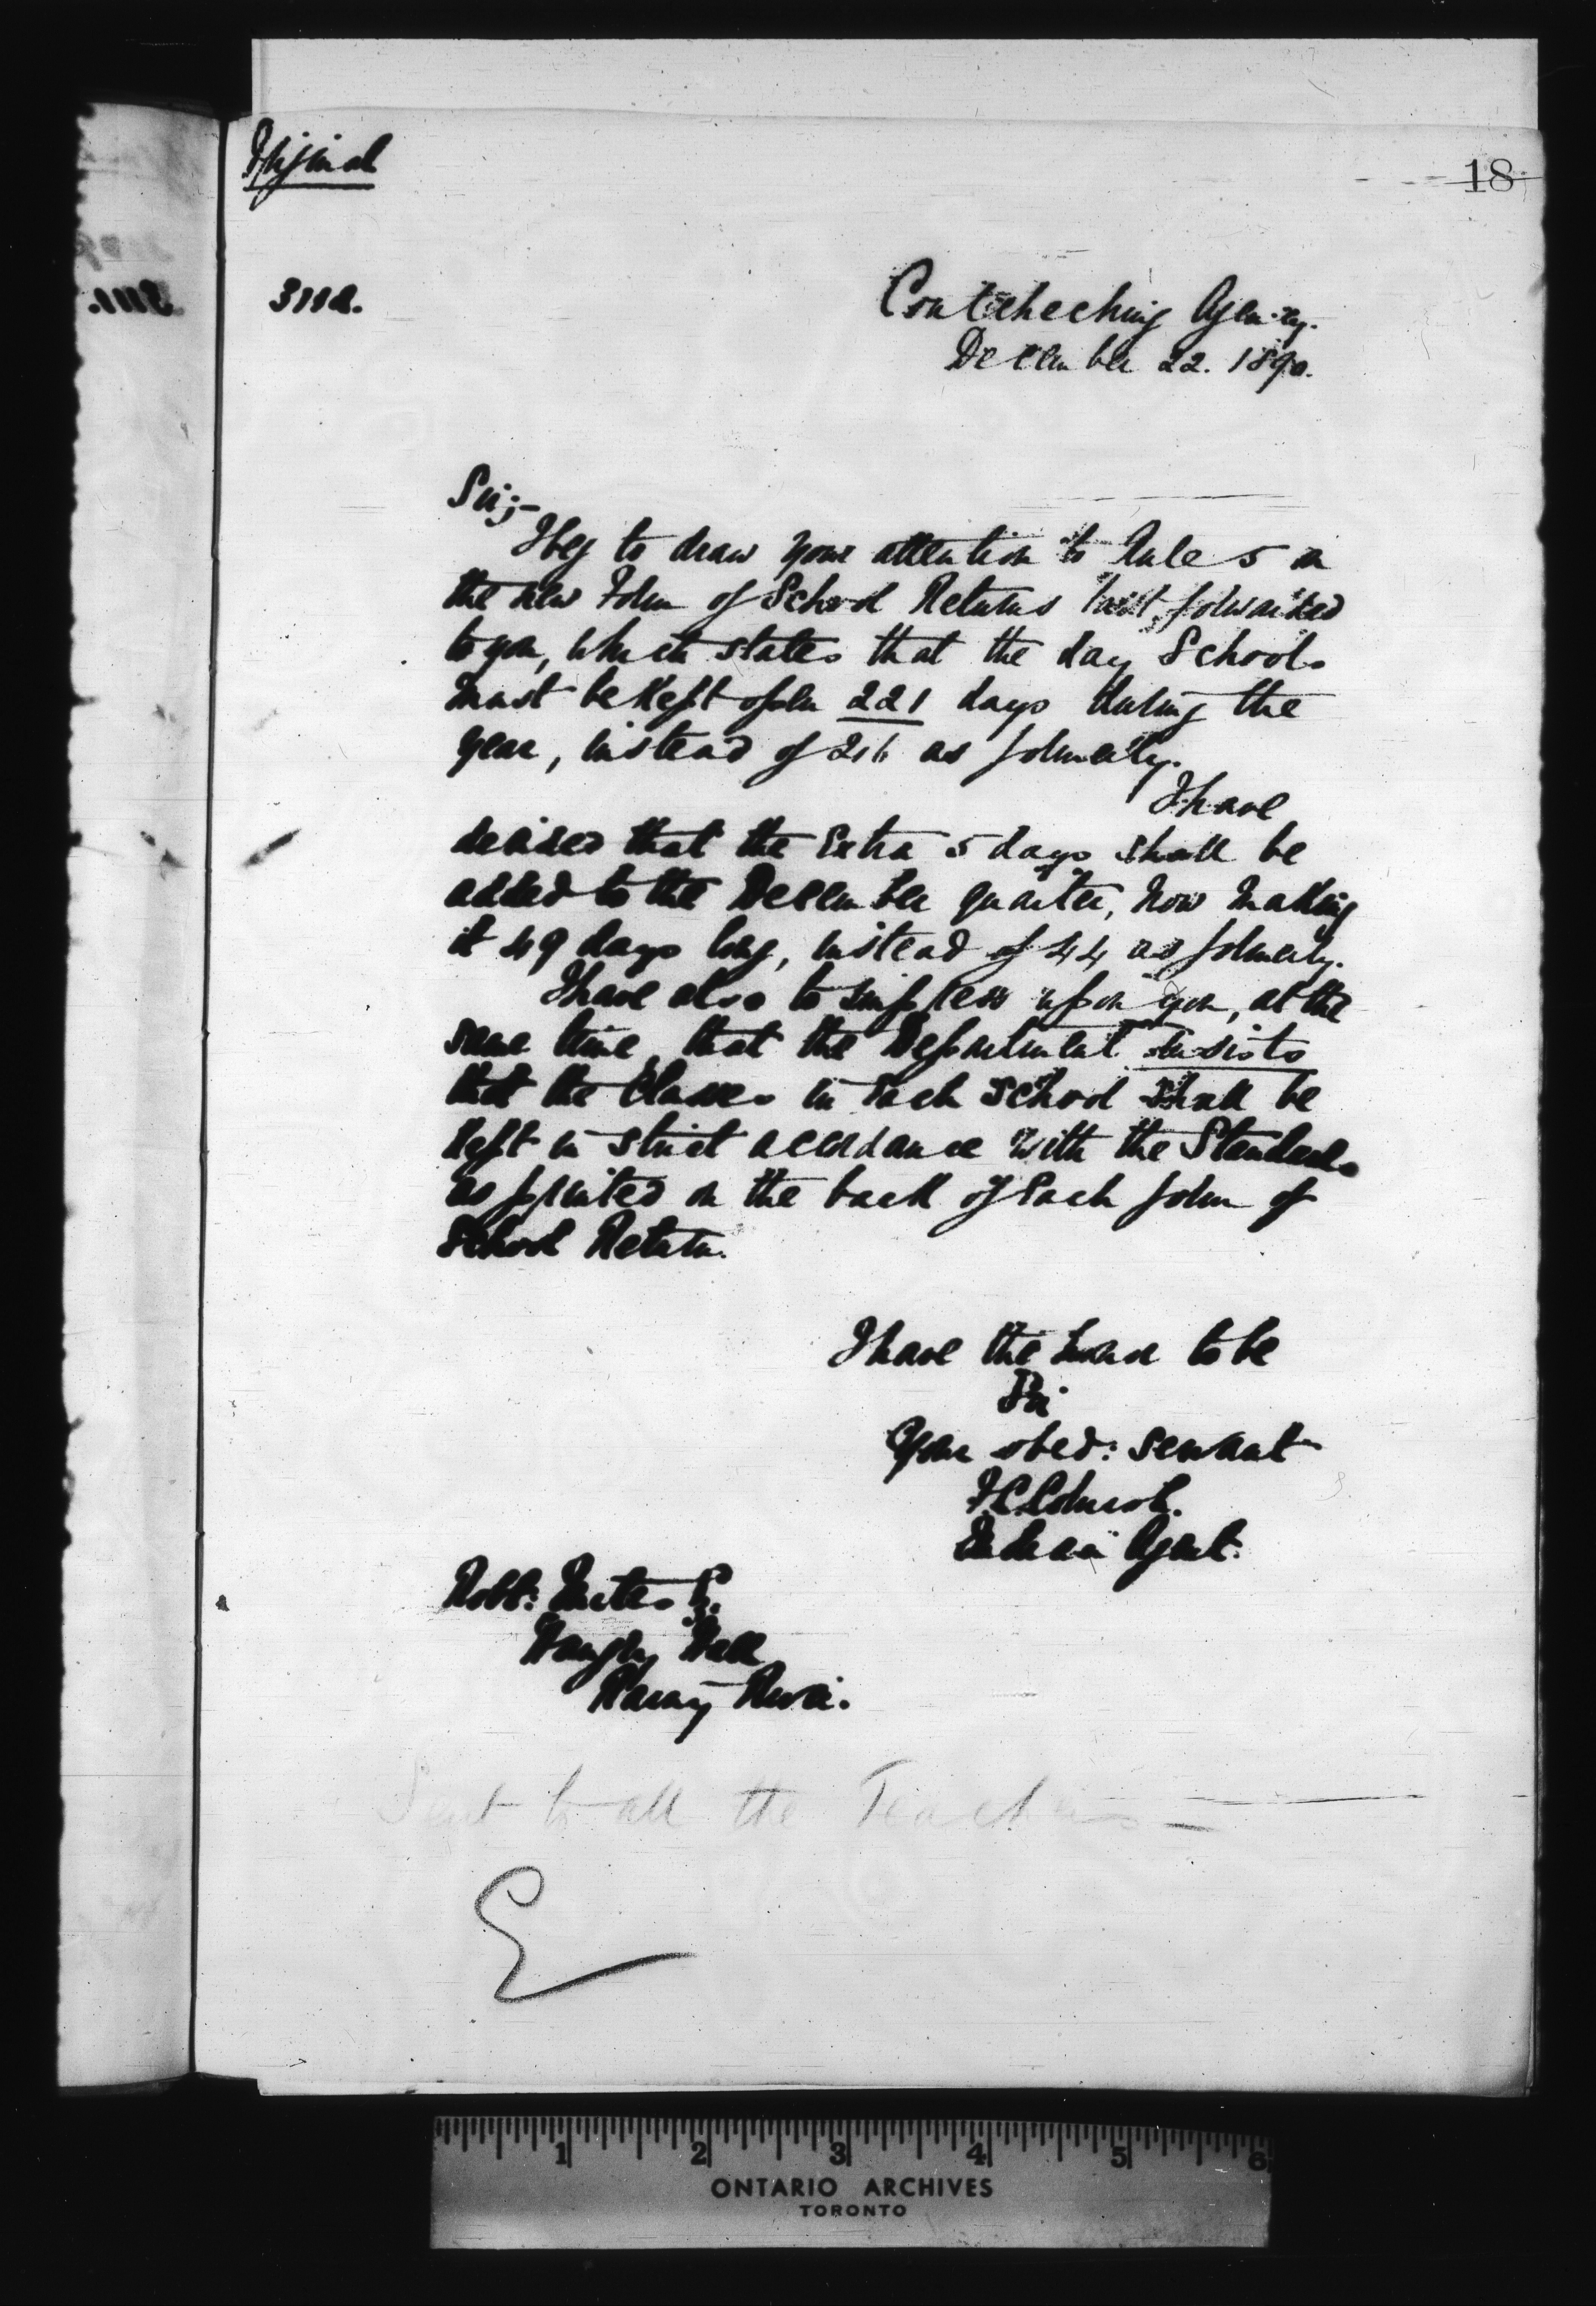 Original
18
3112.
Coutcheching Agency.
December 22. 1890.
Sir;-
I beg to draw your attention to Rule 5 in
the new Form of School Returns last forwarded
to you, which states that the day Schools
must be kept open 221 days during the
year, instead of 216 as formerly.
I have
decided that the Extra 5 days shall be
added to the December quarter, now making
it 49 days long, instead of 44 as formerly.
I have also to impress upon you, at the
same time, that the Department insists
that the Classes in Each School shall be
kept in strict accordance with the Standards
as printed on the back of Each form of
School Return.
I have the honor to be
Sir
Your obed: servant
Indian Agent.
Robt:
Hall
River.
Sent to all the Teachers —
ONTARIO ARCHIVES
TORONTO
1 2 3 4 5 6